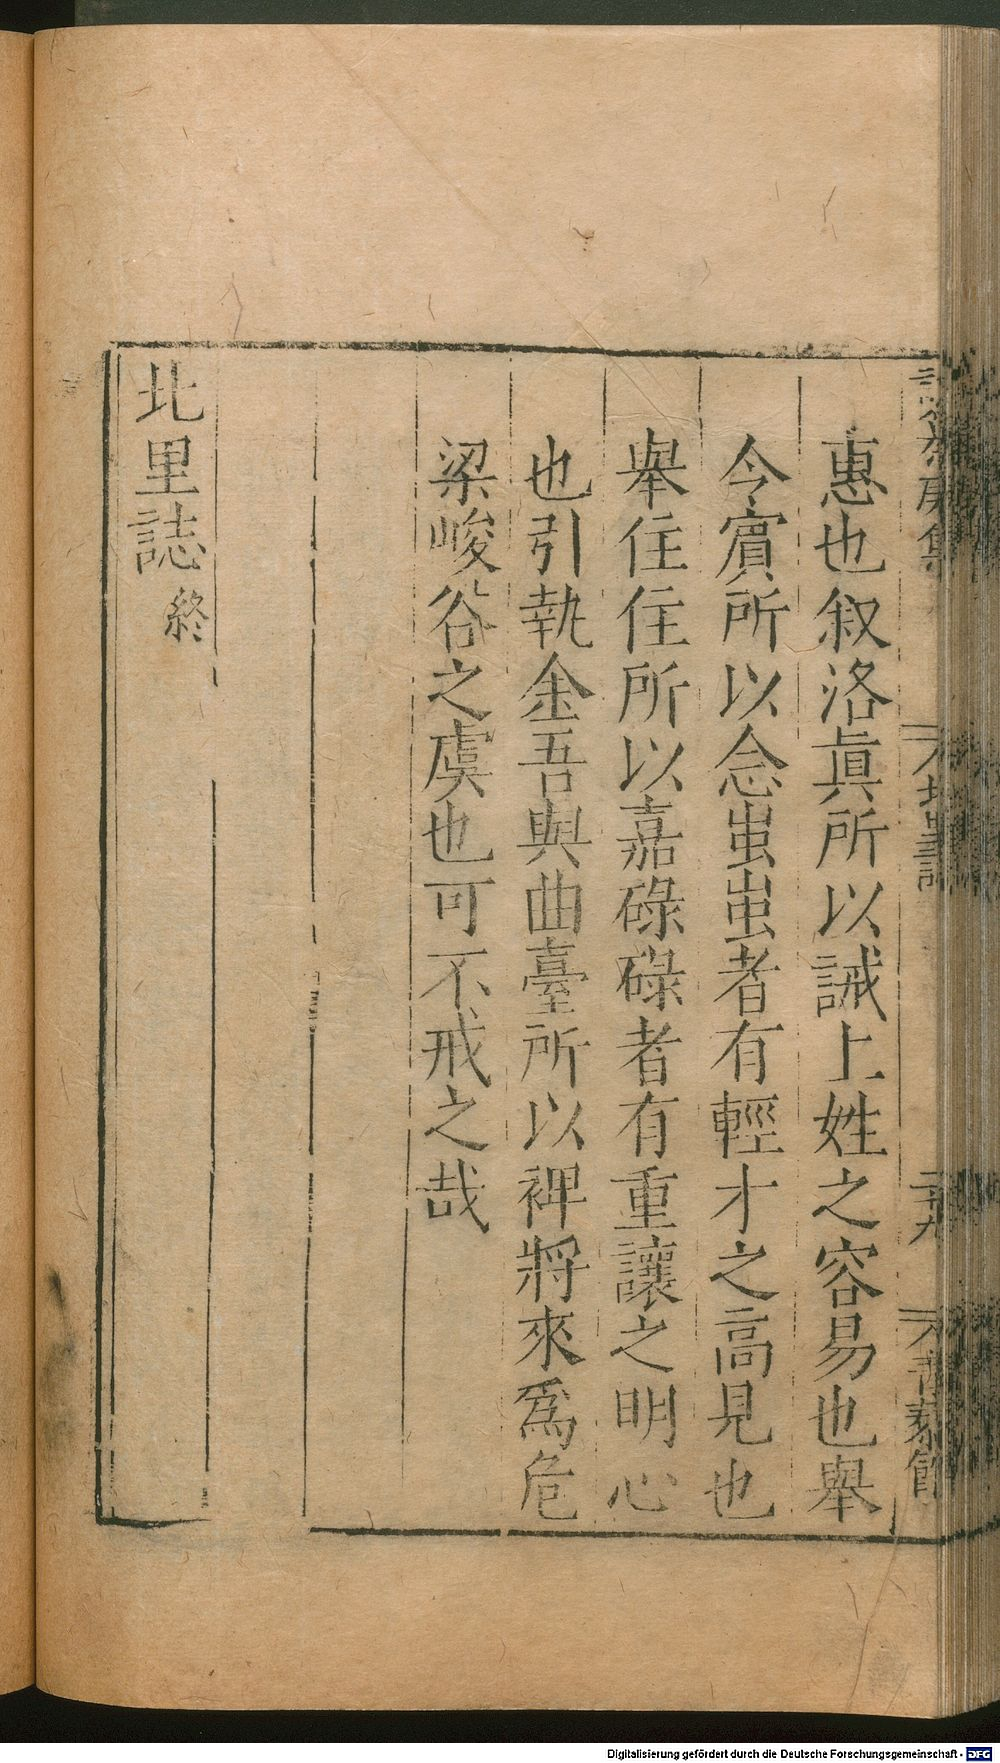 惠也叙洛眞所以誡上姓之容易也舉
今賔所以念蚩蚩者有輕才之高見也
舉住住所以嘉碌碌者有重讓之明心
也引執金吾與曲臺所以裨將來爲危
梁峻谷之虞也可不戒之哉
北里誌終
北里誌
二十九
Digitalisierung gefördert durch die Deutsche Forschungsgemeinschaft - DFG